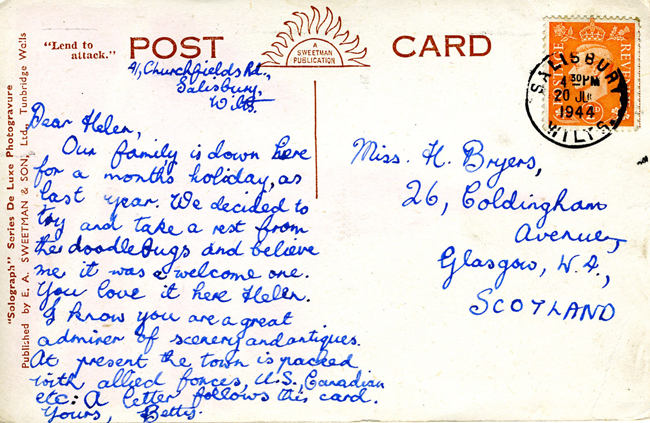 "Lend to
attack."
POST
A
SWEETMAN
PUBLICATION
CARD
"Solograph" Series De Luxe Photogravure
Published by E. A. SWEETMAN & SON, Ltd., Tunbridge Wells
REVENUE
SALISBURY
4 30PM
20 JUL
1944
WILTS
41, Churchfields Rd.,
Salisbury,
Wilts.
Dear Helen,
Our family is down here
for a months holiday, as
last year. We decided to
try and take a rest from
the doodlebugs and believe
me it was a welcome one.
You love it here Helen.
I know you are a great
admirer of scenery and antiques.
At present the town is packed
with allied forces, U.S., Canadian
etc: A letter follows this card.
Yours, Betty.
Miss. H. Bryers,
26, Coldingham
Avenue,
Glasgow, W.4.,
SCOTLAND